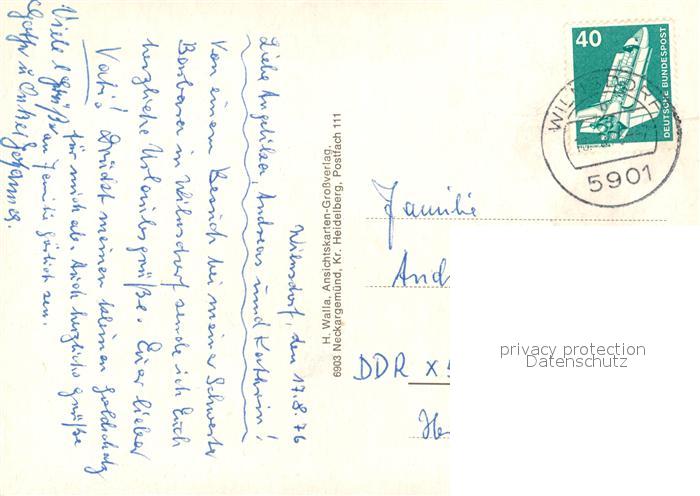 Wilnsdorf, den 17.8.76
Liebe Angelika, Andreas und Kathrin!
Von einem Besuch bei meiner Schwester
Barbara in Wilnsdorf sende ich Euch
herzliche Urlaubsgrüße. Euer lieber
Vati! Drückt meinen kleinen Goldschatz
für mich ab. Auch herzliche Grüße
an Familie
Viele Grüße
u. Onkel Johannes.
H. Walla, Ansichtskarten-Großverlag,
6903 Neckargemünd, Kr. Heidelberg, Postfach 111
40
DEUTSCHE BUNDESPOST
WILNSDORF
5901
Familie
And
DDR X
He
privacy protection
Datenschutz